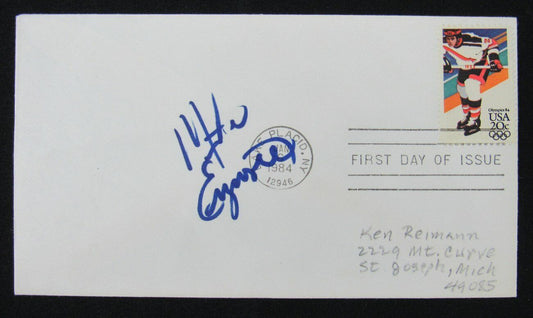 Olympics 84
USA
20c
Mike
Eruzione
LAKE PLACID, NY
JAN
1984
12946
FIRST DAY OF ISSUE
Ken Reimann
2229 Mt. Curve
St Joseph, Mich
49085